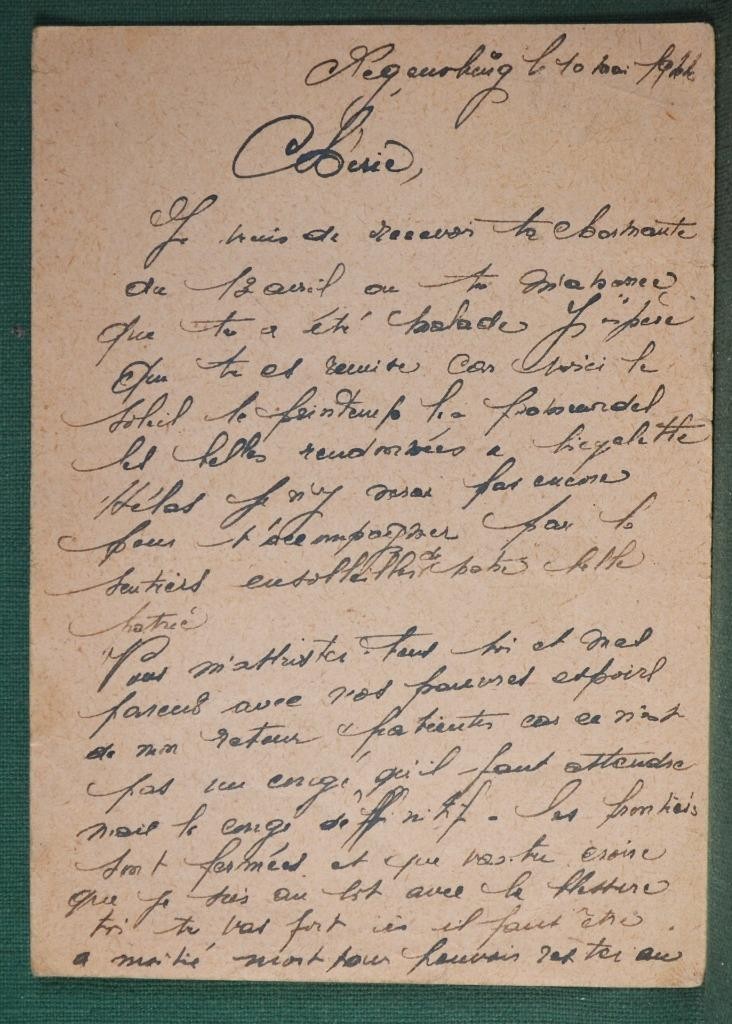 Regensburg le 10 mai 1944
Chérie,
Je viens de recevoir ta charmante
du 12 avril ou tu m'annonce
que tu a été malade J'éspère
que tu es remise car voici le
soleil le printemp les promenades
les belles randonnées a bicyclette
Hélas je n'y serai pas encore
pour t'accompagner par le
sentiers ensolleillés de notre belle
patrie
Vous m'attristez tous toi et mes
parents avec vos pauvres espoirs
de mon retour patientez car ce n'est
pas un congé qu'il faut attendre
mais le congé définitif. les frontières
sont fermées et que vas tu croire
que je suis au lit avec la blessure
toi tu vas fort ici il faut être
a moitié mort pour pouvoir rester au